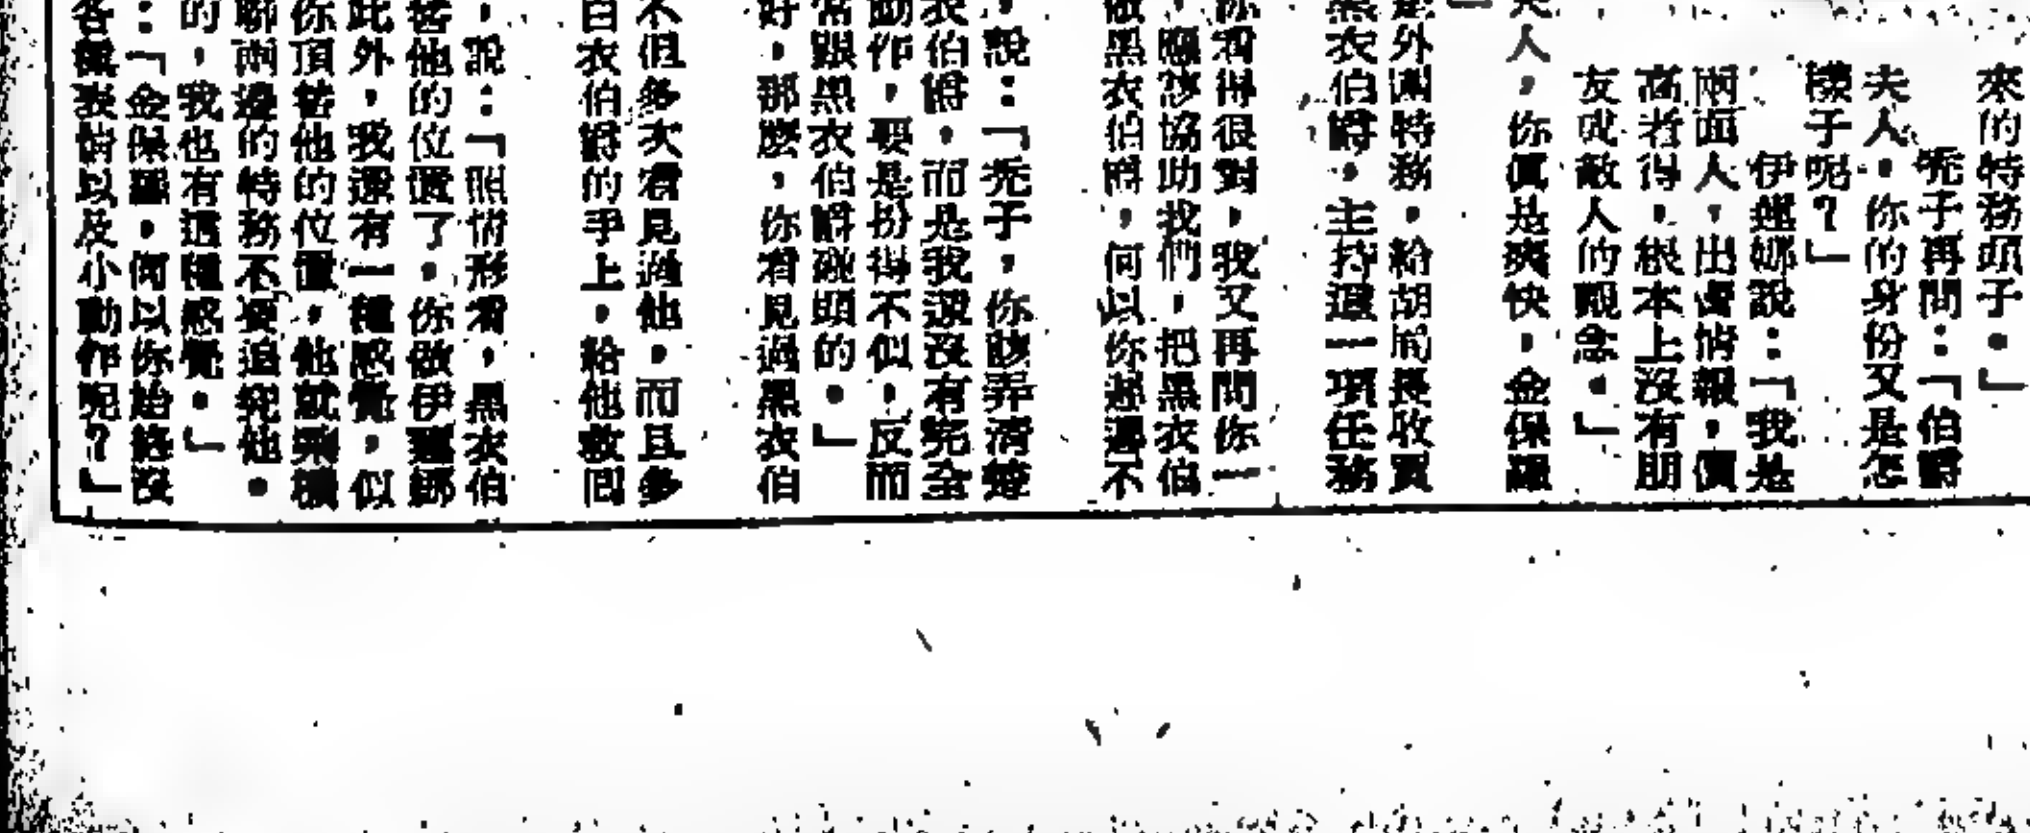 來的特務頭子。」
禿子再問：「伯爵
夫人，你的身份又是怎
樣子呢？」
伊蓮娜說：「我是
兩面人，出賣情報，價
高者得，根本上沒有朋
友或敵人的觀念。」
夫人，你真是爽快，金保羅
外圍特務，給胡局長收買
黑衣伯爵，主持這一項任務
你看得很對，我又再問你一
，應該協助我們，把黑衣伯
做黑衣伯爵，何以你遲遲不
，說：「禿子，你該弄清楚
衣伯爵，而是我還沒有完全
動作，要是扮得不似，反而
常跟黑衣伯爵碰頭的。」
好，那麼，你看見過黑衣伯
不但多次看見過他，而且多
白衣伯爵的手上，給他救回
，說：「照情形看，黑衣伯
替他的位置了，你做伊蓮娜
此外，我還有一種感覺，似
你頂替他的位置，他就乘機
聯兩邊的特務不要追究他。
的，我也有這種感覺。」
：「金保羅，何以你始終沒
各種表情以及小動作呢？」